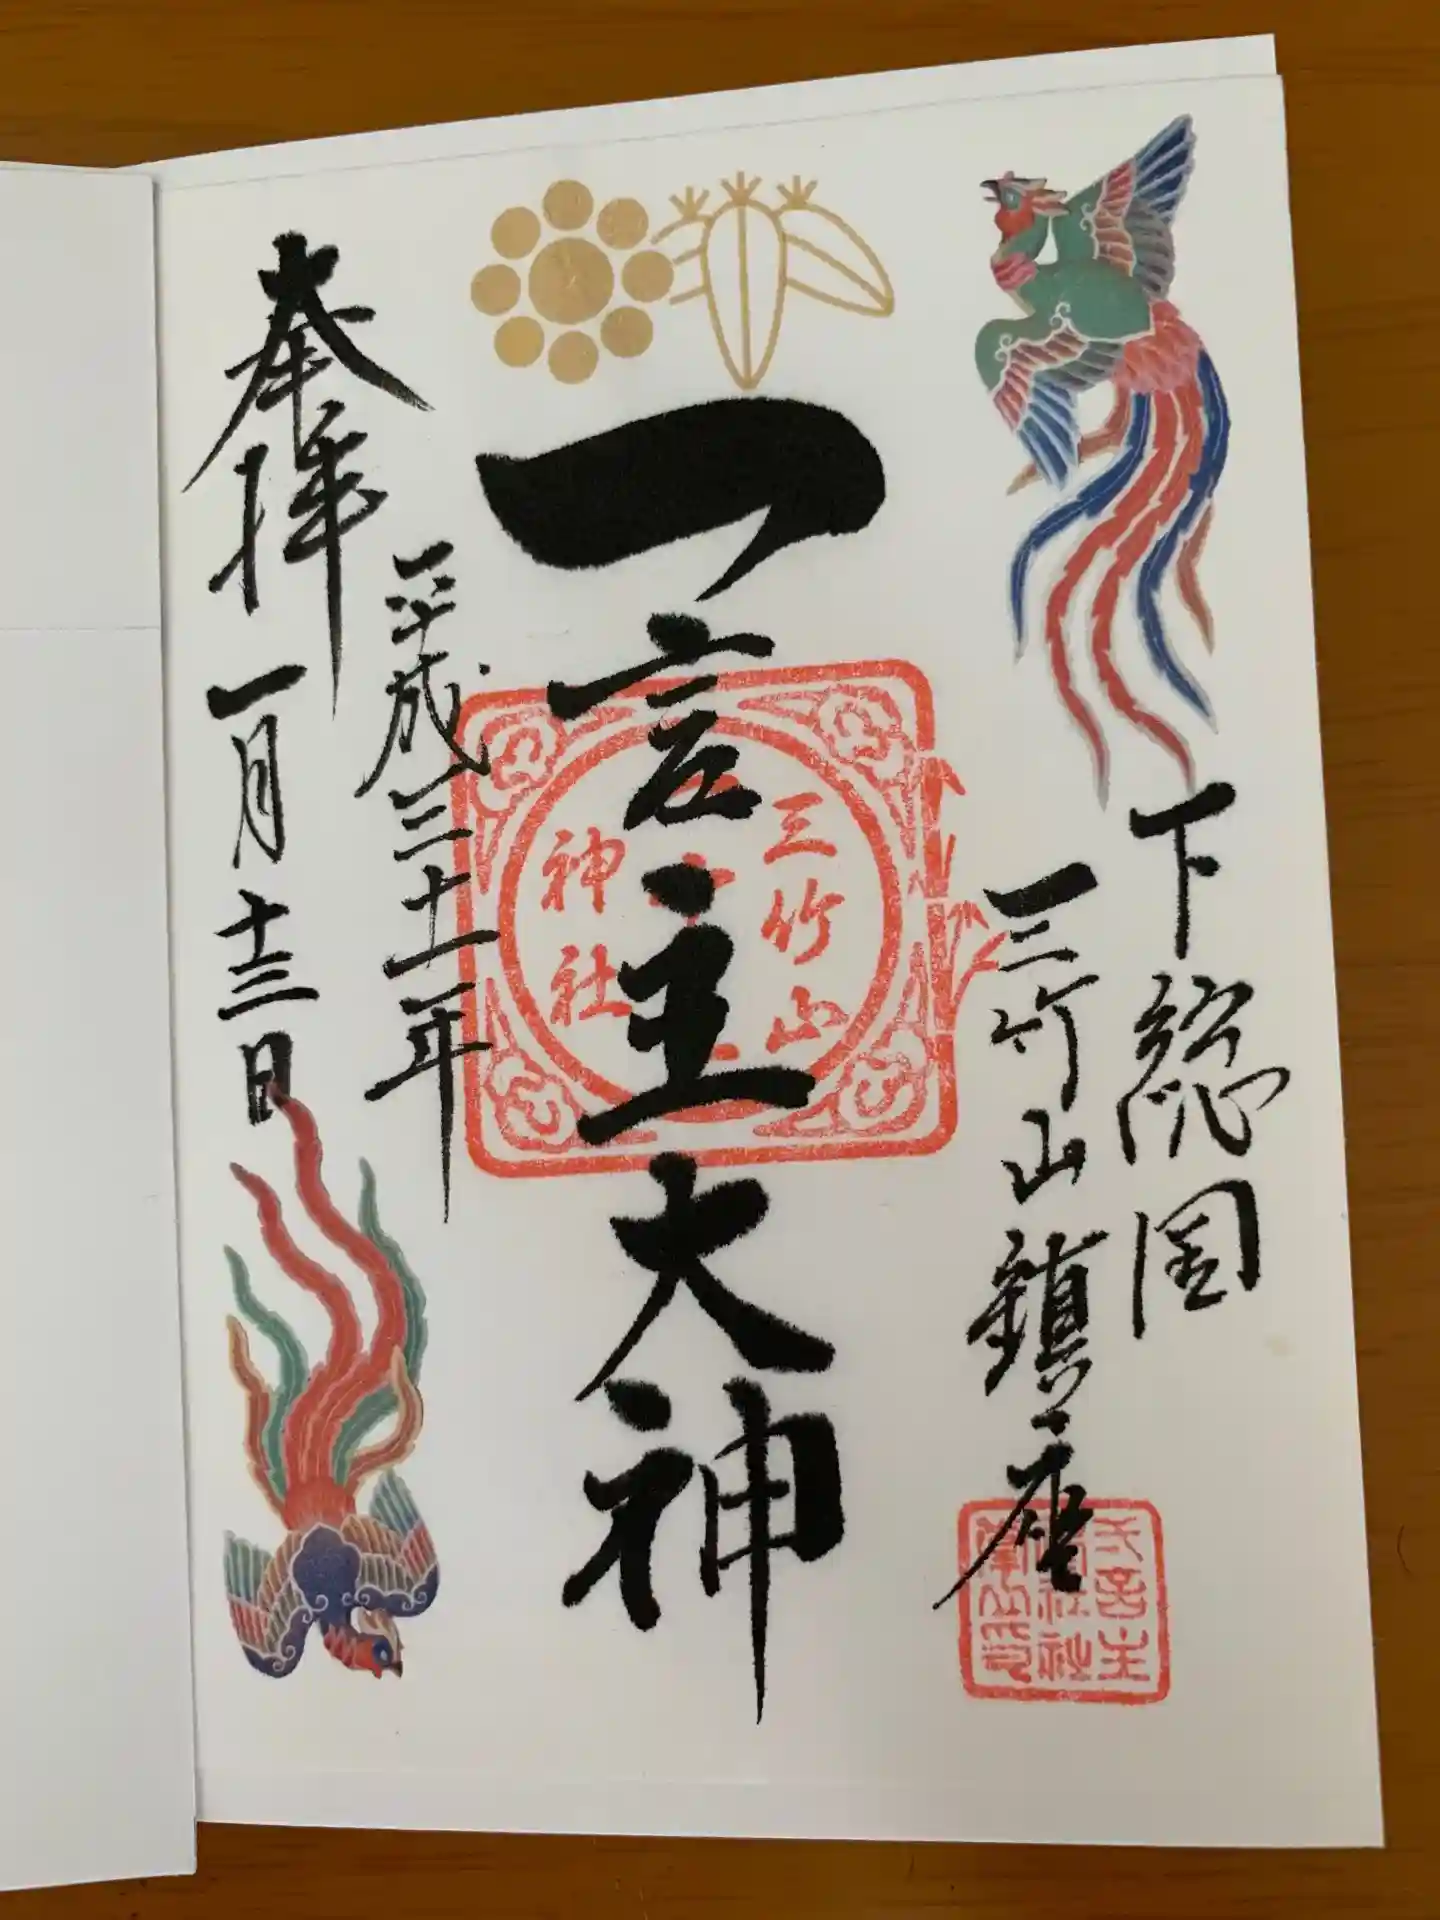 下総国
三竹山鎮座
一言主大神
平成三十一年
奉拝
一月十三日
三竹山
神社